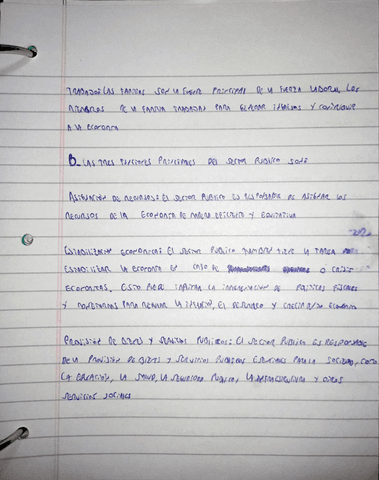 TRABAJO: LAS FAMILIAS SON LA FUENTE PRINCIPAL DE LA FUERZA LABORAL LOS
MIEMBROS DE LA FAMILIA TRABAJAN PARA GENERAR INGRESOS Y CONTRIBUIR
A LA ECONOMIA
B. LAS TRES FUNCIONES PRINCIPALES DEL SECTOR PUBLICO SON:
ASIGNACIÓN DE RECURSOS: EL SECTOR PUBLICO ES RESPONSABLE DE ASIGNAR LOS
RECURSOS DE LA ECONOMIA DE MANERA EFICIENTE Y EQUITATIVA
ECONOMICA: EL SECTOR PUBLICO TAMBIEN TIENE LA TAREA
ESTABILIZAR LA ECONOMIA EN CASO DE O CRISIS
ECONOMICAS. ESTO PUEDE IMPLICAR LA IMPLEMENTACION DE POLITICAS FISCALES
Y MONETARIAS PARA LA INFLACIÓN, EL DESEMPLEO Y CRECIMIENTO ECONOMICO
PROVISIÓN DE BIENES Y SERVICIOS PUBLICOS: EL SECTOR PUBLICO ES RESPONSABLE
DE LA PROVISIÓN DE BIENES Y SERVICIOS PUBLICOS ESENCIALES PARA LA SOCIEDAD, COMO
LA EDUCACIÓN, LA SALUD, LA SEGURIDAD PUBLICA, LA INFRAESTRUCTURA Y OTROS
SERVICIOS SOCIALES